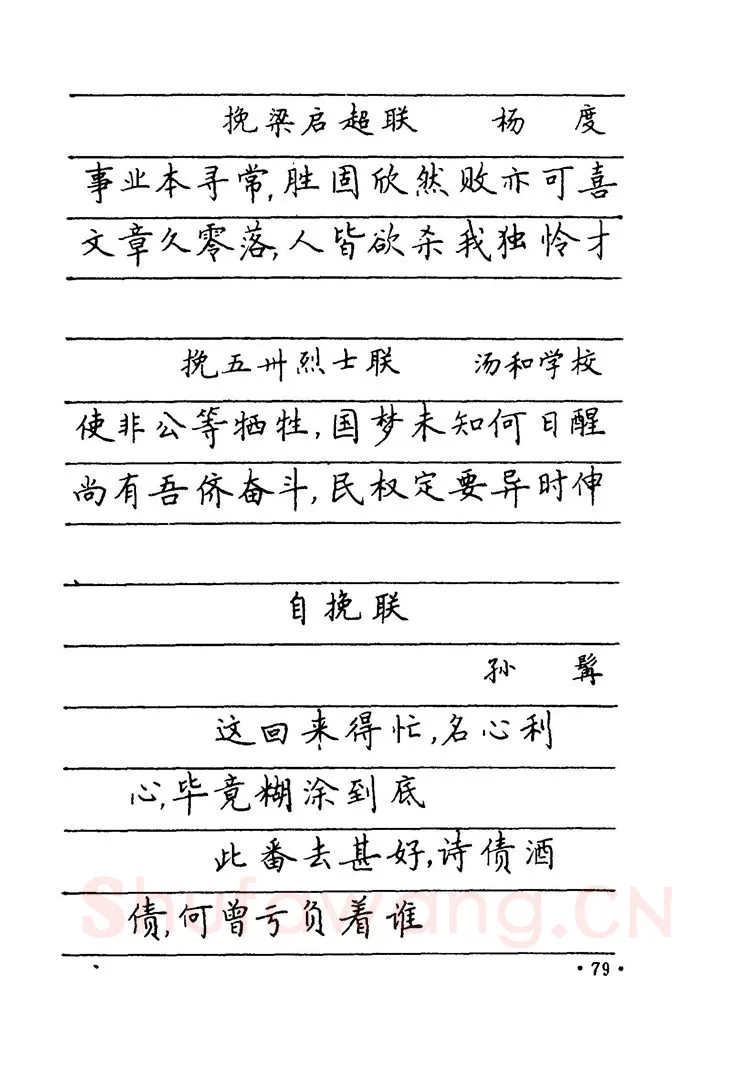 挽梁启超联 杨 度
事业本寻常,胜固欣然败亦可喜
文章久零落,人皆欲杀我独怜才
挽五卅烈士联 汤和学校
使非公等牺牲,国梦未知何日醒
尚有吾侪奋斗,民权定要异时伸
自挽联
孙 髯
这回来得忙,名心利
心,毕竟糊涂到底
此番去甚好,诗债酒
债,何曾亏负着谁
Shufawang.CN
·79·